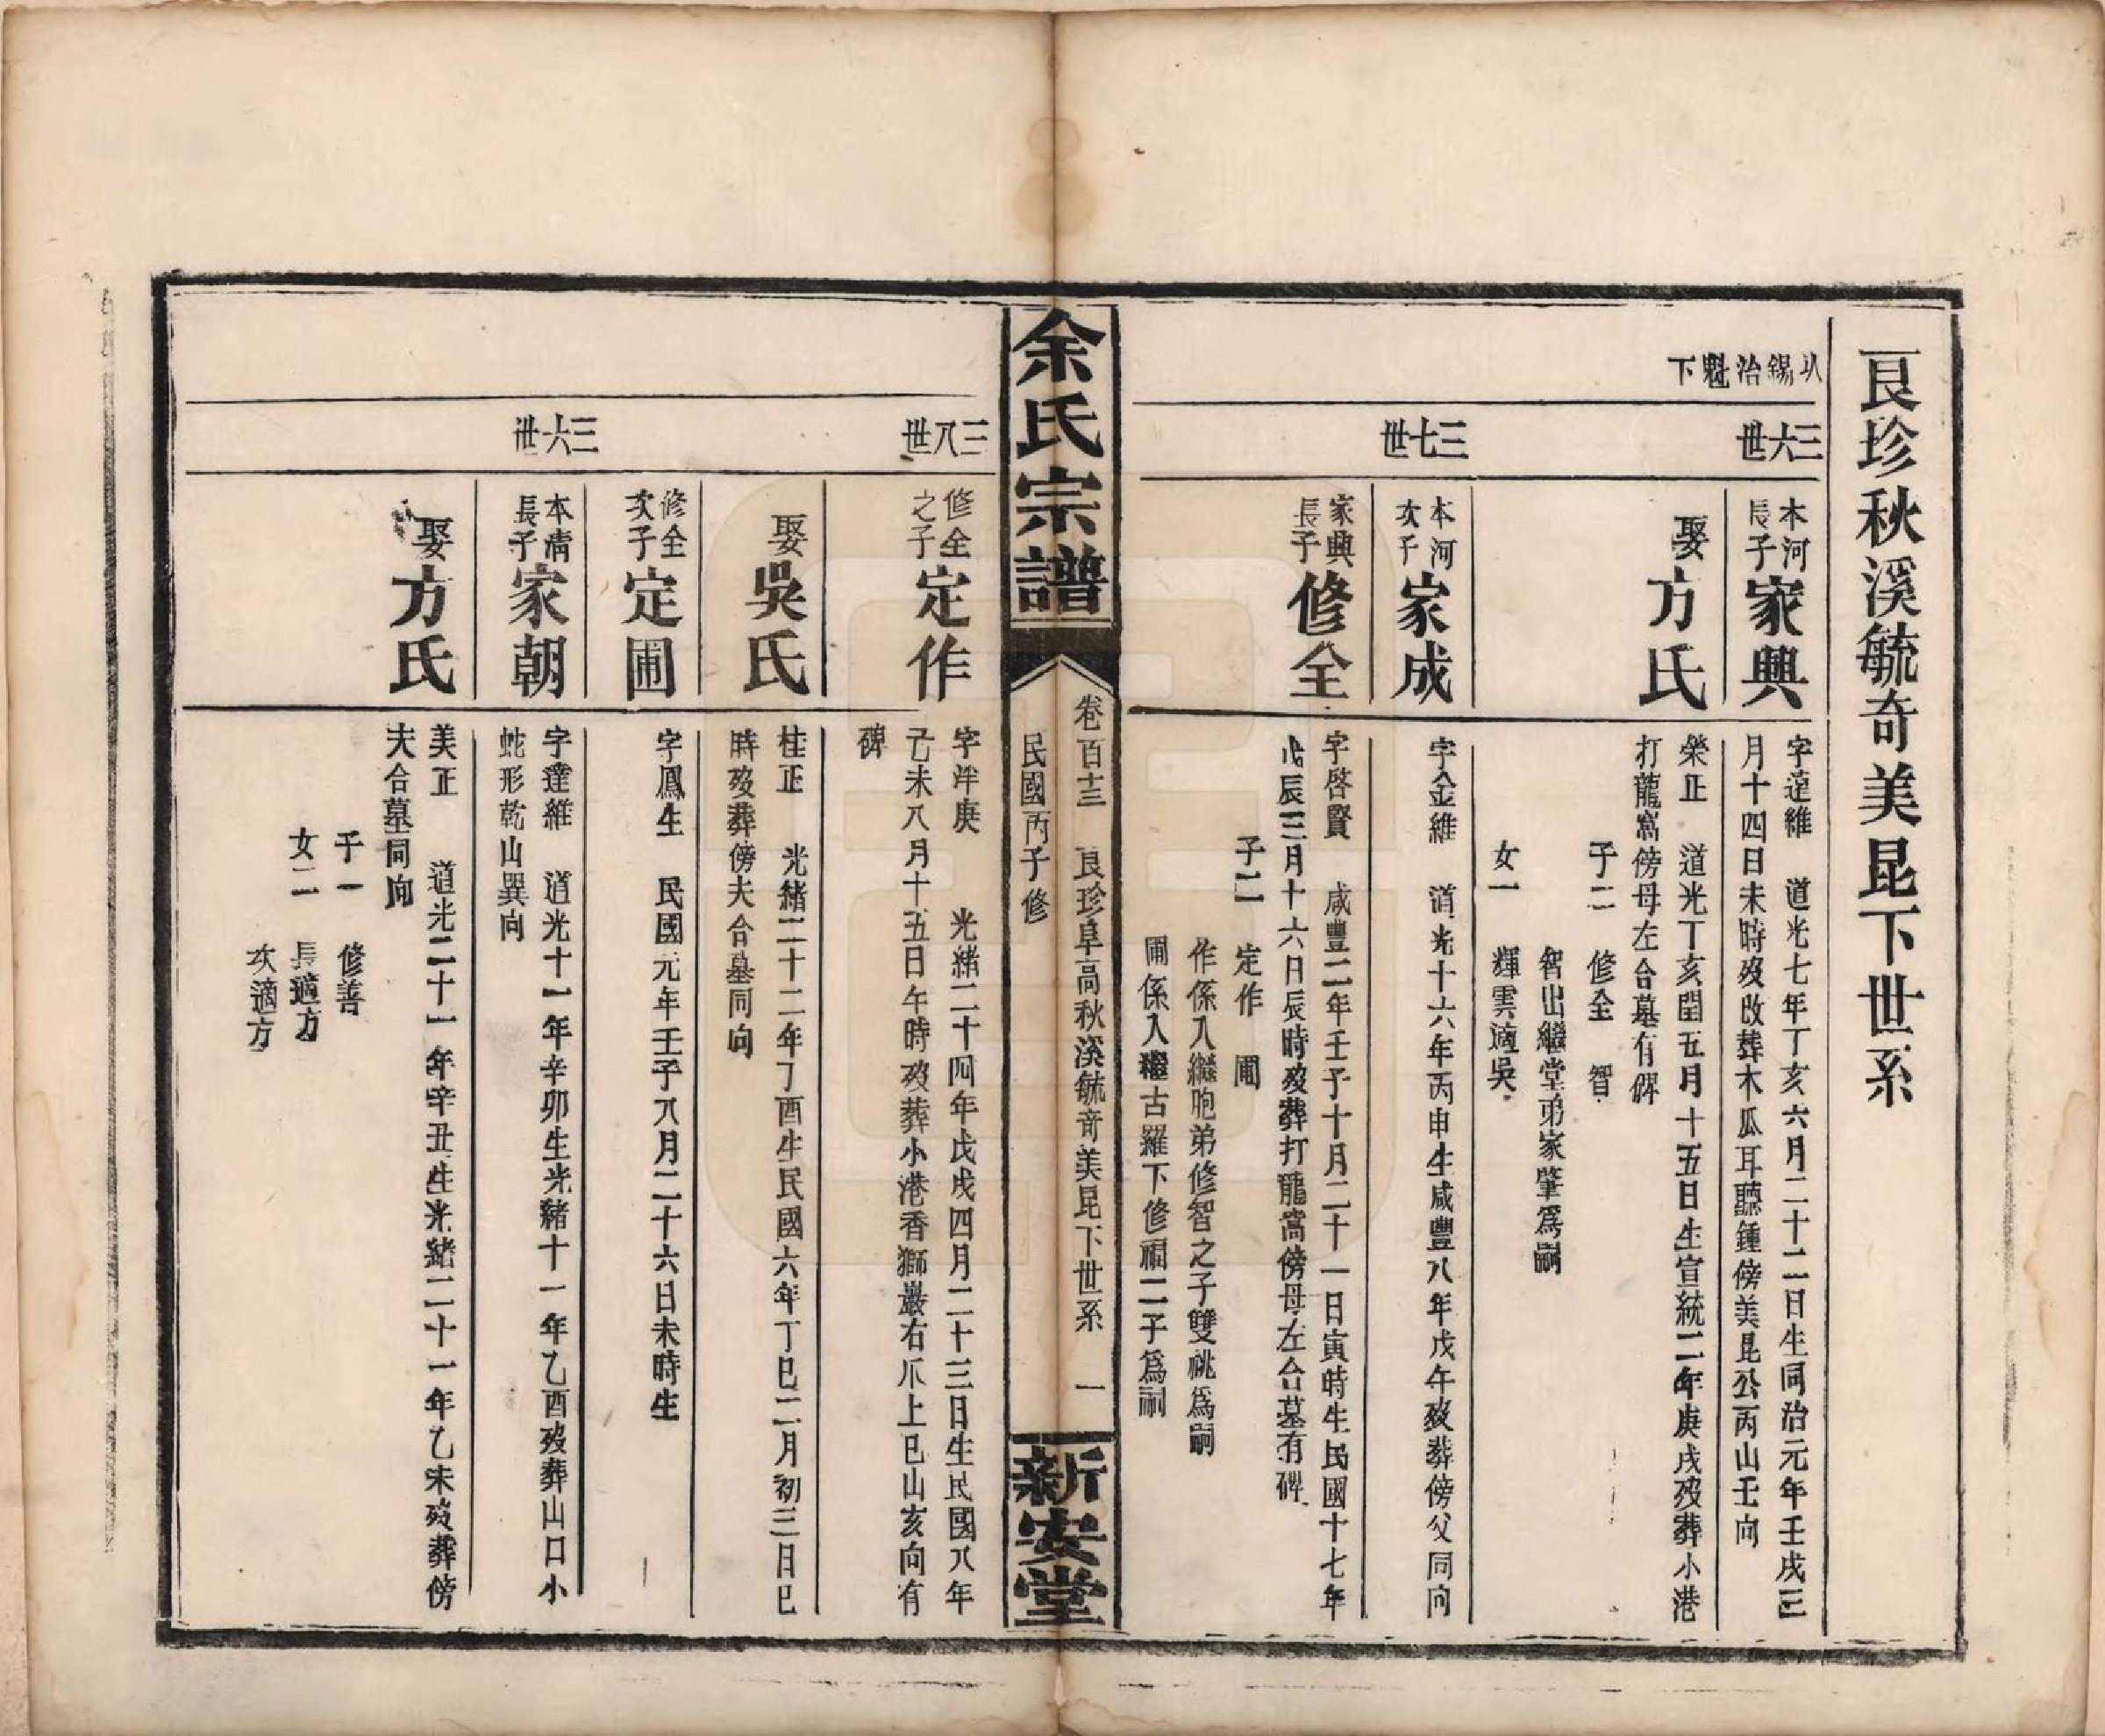 艮珍秋溪毓奇美昆下世系
玖錫治魁下
三六世
本河長子
家興
字達維　道光七年丁亥六月二十二日生同治元年壬戌三
月十四日未時歿改葬木瓜耳聽鍾傍美昆公丙山壬向
娶方氏
榮正　道光丁亥閏五月十五日生宣統二年庚戌歿葬小港
打龍窩傍母左合墓有碑
子二　修全　智
智出繼堂弟家肇爲嗣
女一　輝雲適吳
三七世
本河次子
家成
字金維　道光十六年丙申生咸豐八年戊午歿葬傍父同向
家興長子
修全
字啓賢　咸豐二年壬子十月二十一日寅時生民國十七年
戊辰三月十六日辰時歿葬打龍窩傍母左合墓有碑
子二　定作　圃
作係入繼胞弟修智之子雙祧爲嗣
圃係入繼古羅下修福二子爲嗣
余氏宗譜
卷百十三　艮珍阜高秋溪毓奇美昆下世系　一
民國丙子修
新安堂
三八世
修全之子
定作
字泮庚　光緒二十四年戊戌四月二十三日生民國八年
己未八月十五日午時歿葬小港香獅巖右爪上巳山亥向有
碑
娶吳氏
桂正　光緒二十二年丁酉生民國六年丁巳二月初三日巳
時歿葬傍夫合墓同向
修全次子
定圃
字鳳生　民國元年壬子八月二十六日未時生
三六世
本清長子
家朝
字達維　道光十一年辛卯生光緒十一年乙酉歿葬山口小
蛇形乾山巽向
娶方氏
美正　道光二十一年辛丑生光緒二十一年乙未歿葬傍
夫合墓同向
子一　修善
女二　長適方
次適方